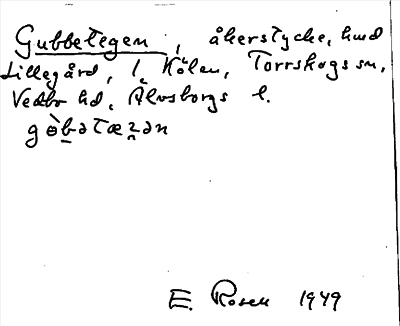 Gubbetegen, åkerstycke, hmd
Lillegård, l. Kölen, Torrskogs sn,
Vedbo hd, Älvsborgs l.
gòbətæɀən
E. Rosen 1949